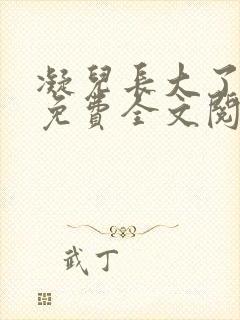 凝兒長大了
免費全文閱
武丁